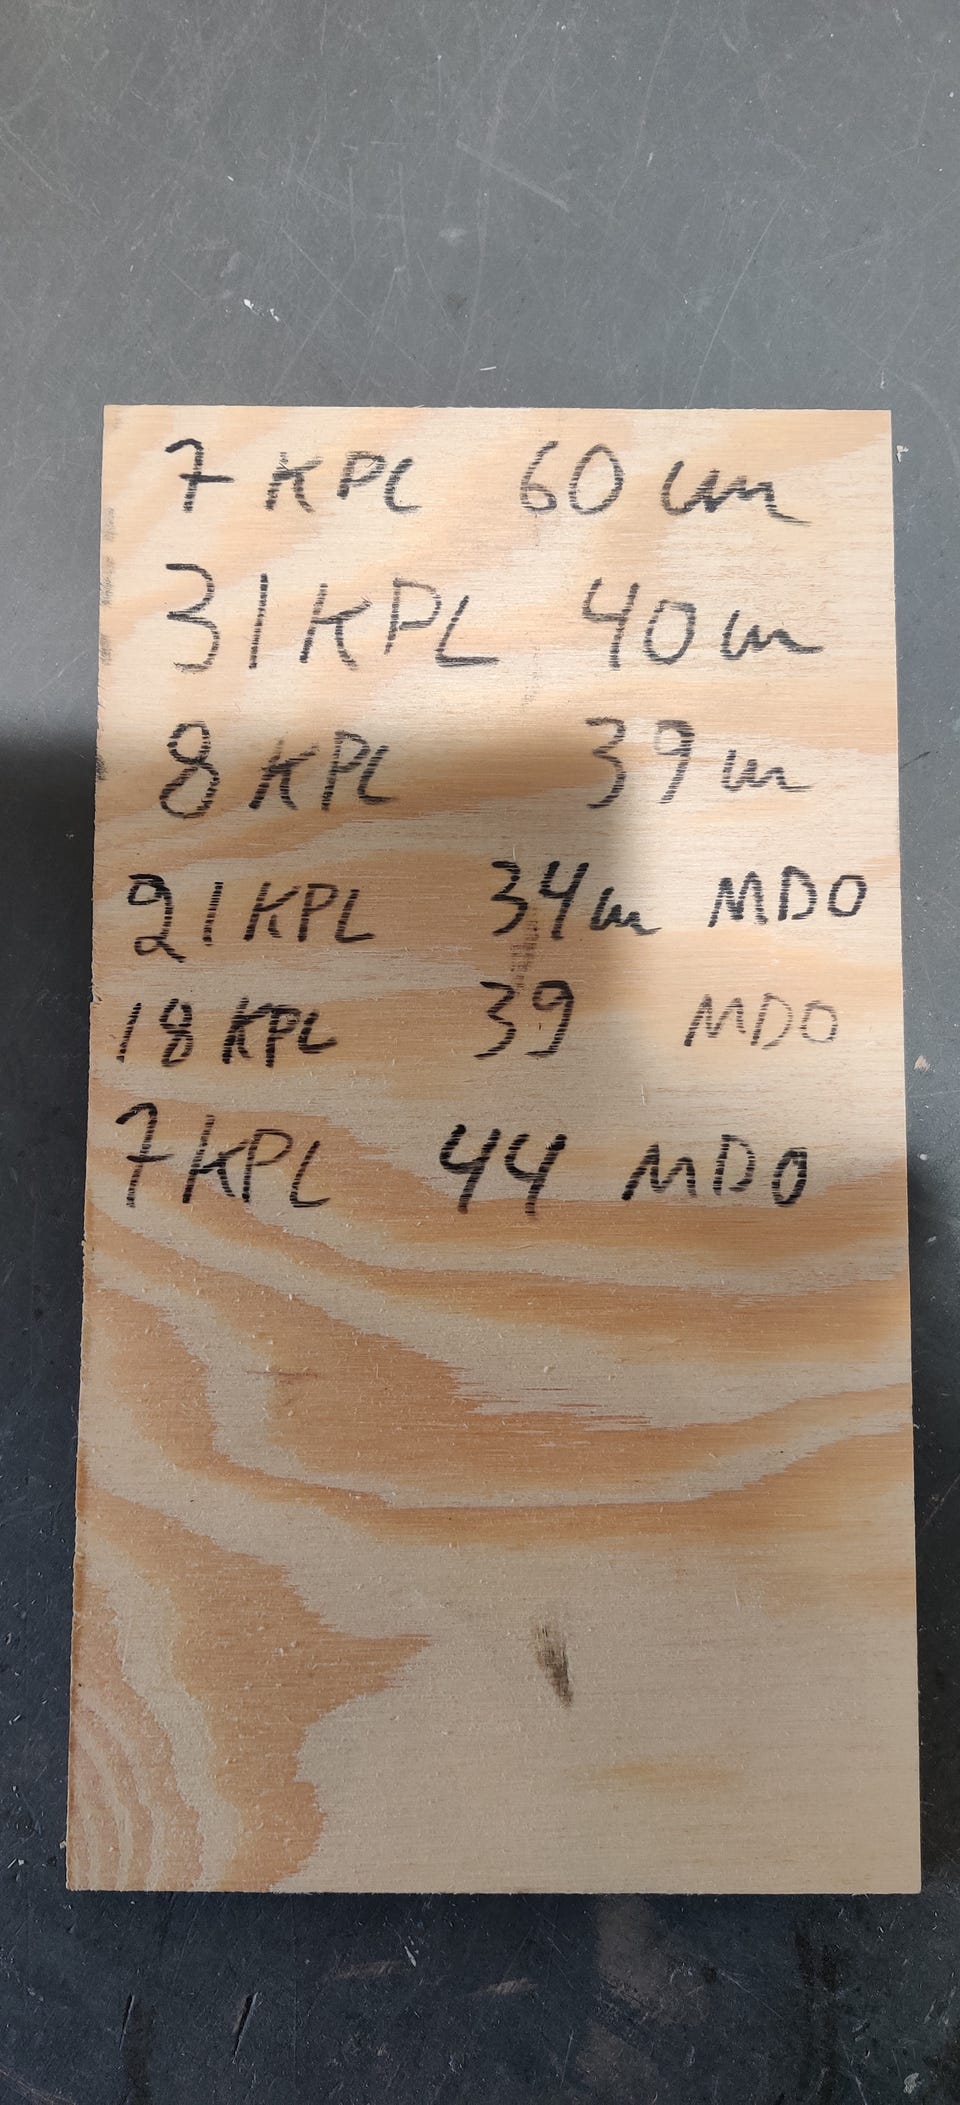 7 KPL 60 cm
31 KPL 40 cm
8 KPL 39 cm
21 KPL 34 cm MDO
18 KPL 39 MDO
7 KPL 44 MDO